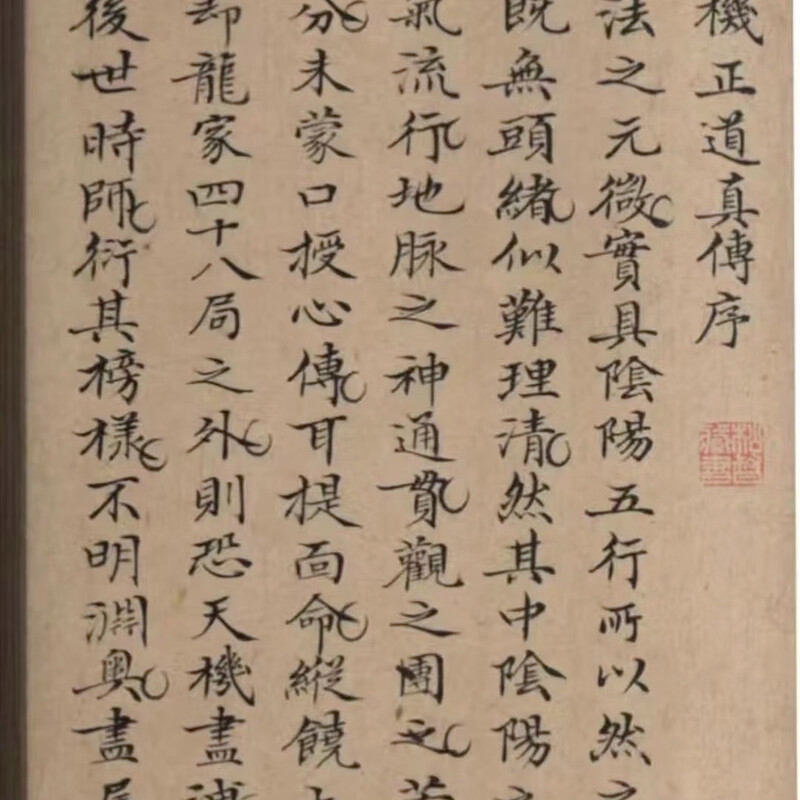 機正道真傳序
法之元微實具陰陽五行所以然之
既無頭緒似難理清然其中陰陽之
氣流行地脈之神通貫觀之團之若
分未蒙口授心傳耳提面命縱饒上
却龍家四十八局之外則恐天機盡洩
後世時師衍其榜樣不明淵奧盡屬